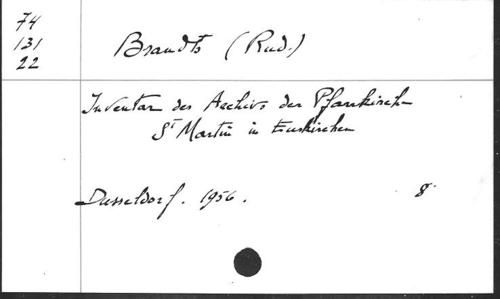 74
131
22
Brandts (Rud.)
Inventar des Archivs der Pfarrkirche
St Martin in Euskirchen
Dusseldorf. 1956.
8°